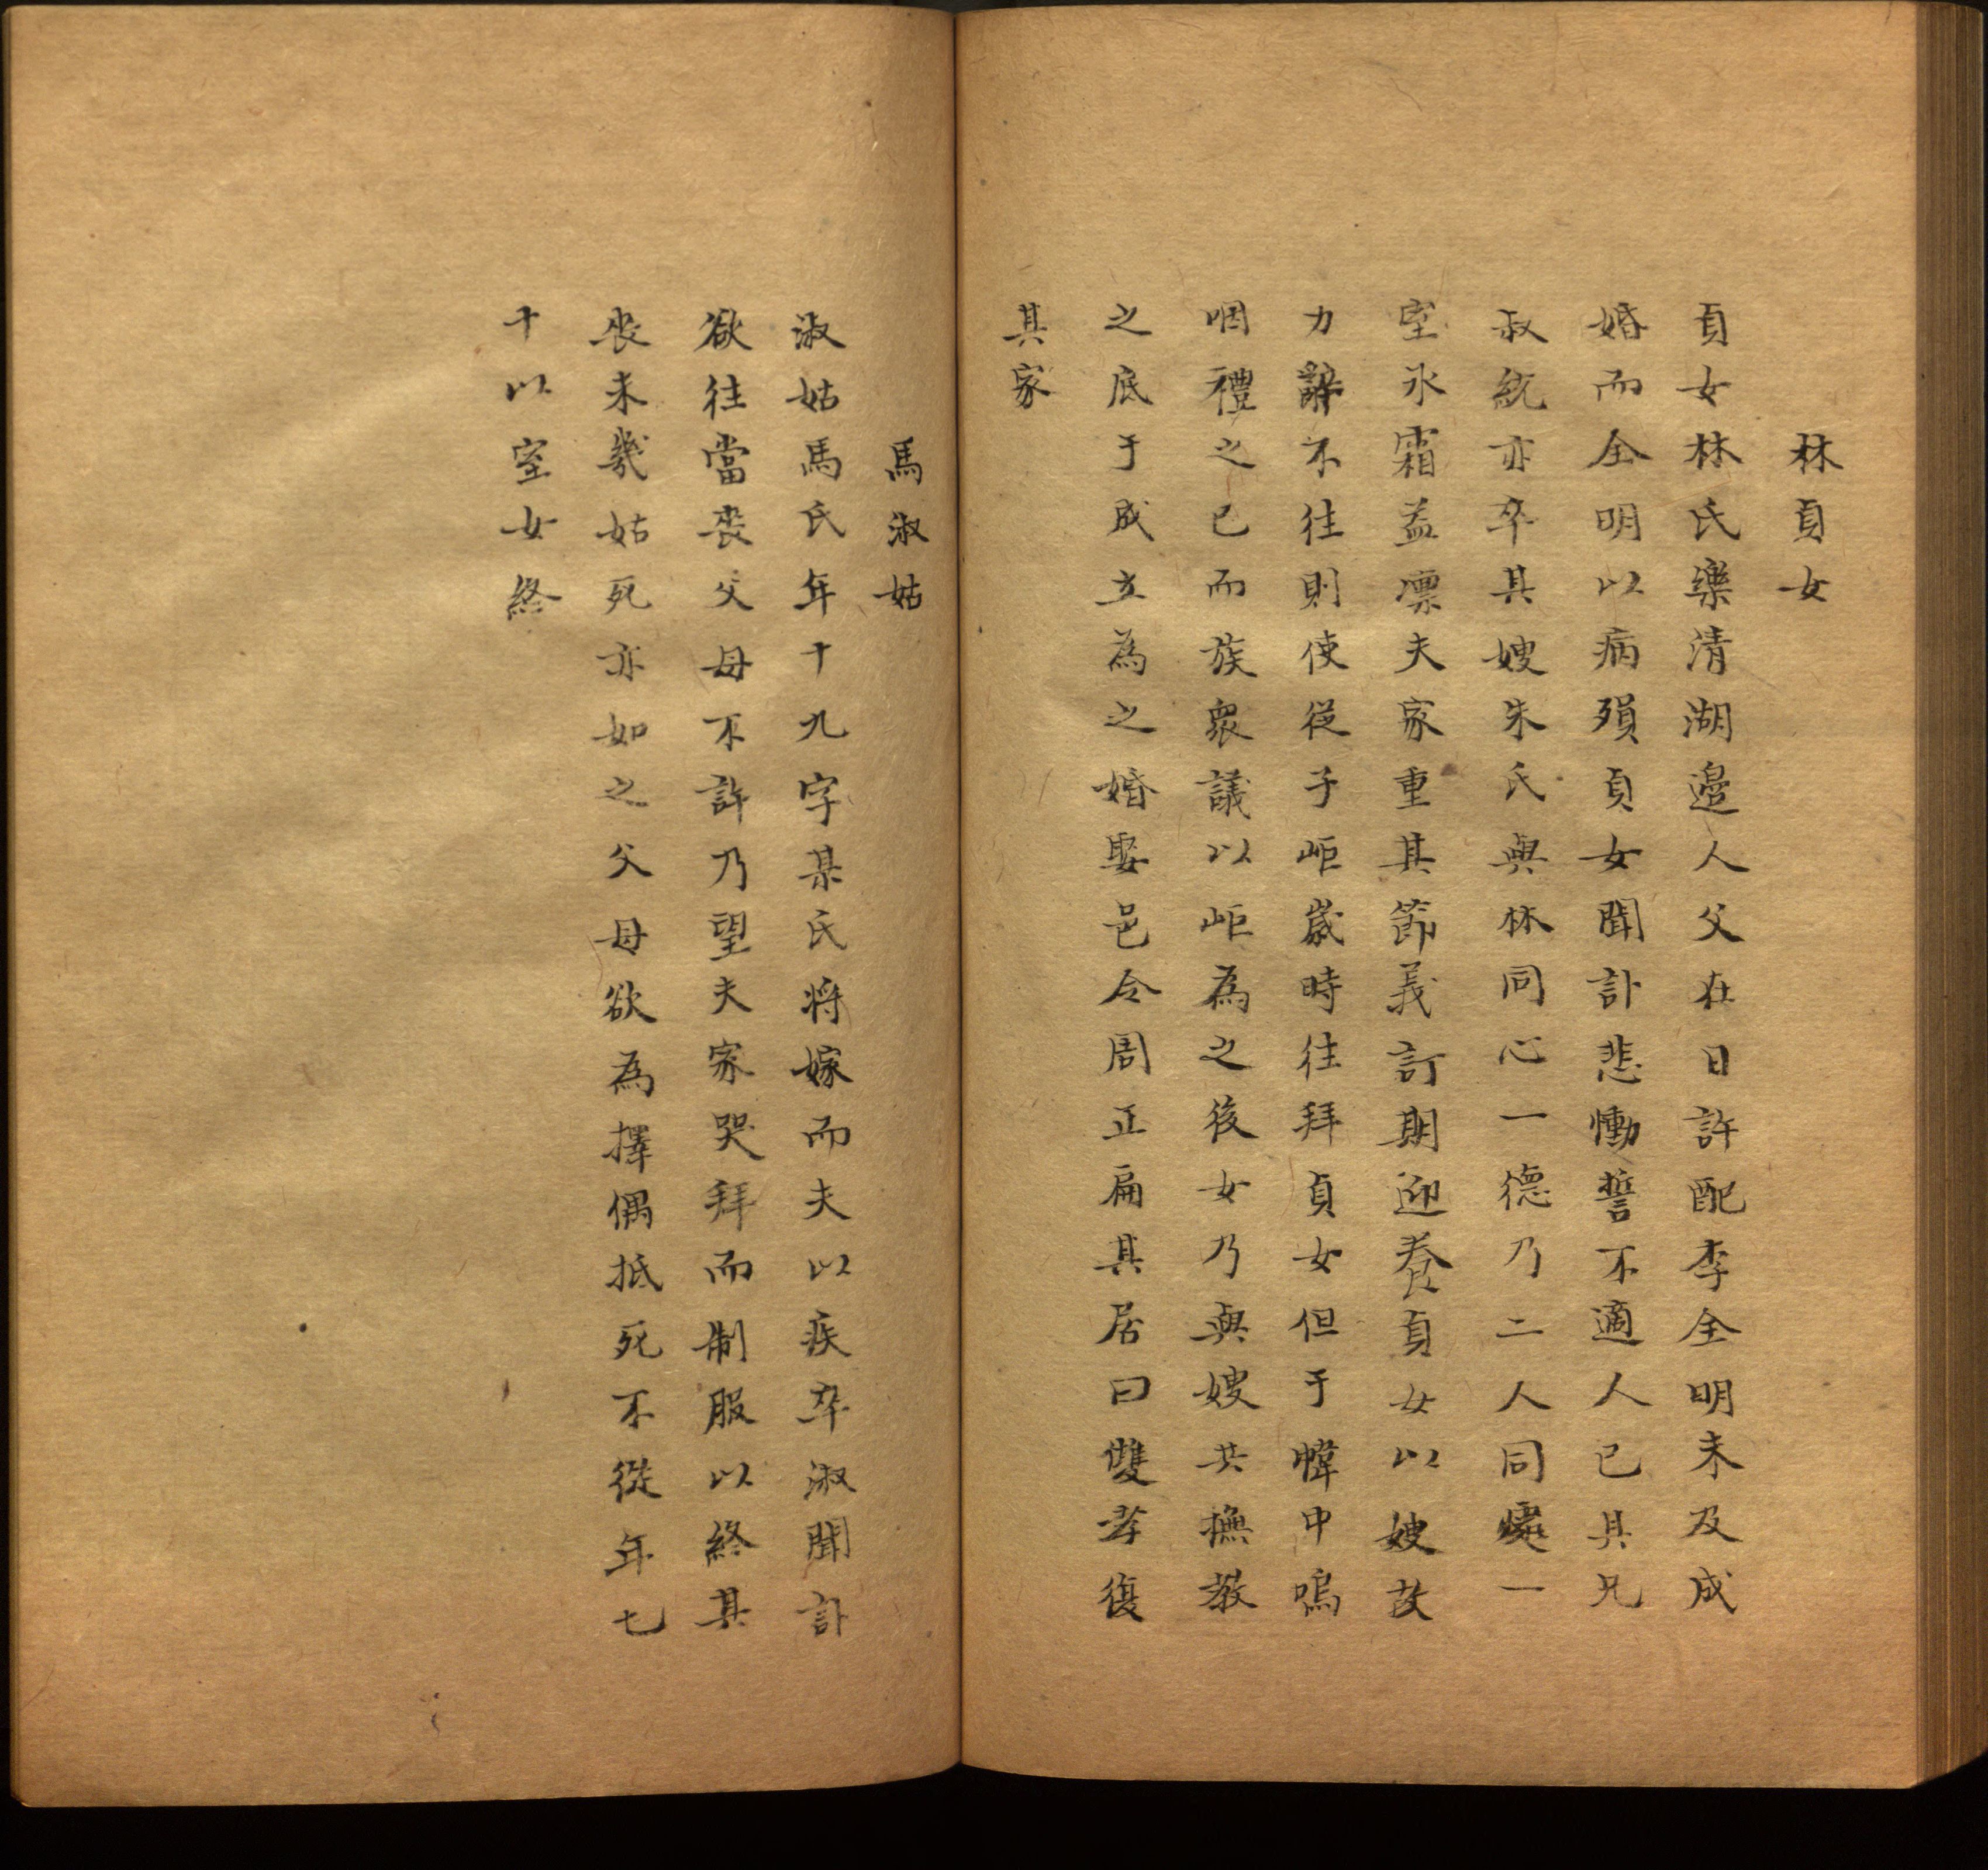 林貞女
貞女林氏樂清湖邉人父在日許配李全明未及成
婚而全明以病殞貞女聞訃悲慟誓不適人已其兄
叔統亦卒其嫂朱氏與林同心一德乃二人同爨一
室氷霜益凛夫家重其節義訂期迎養貞女以嫂故
力辭不往則使從子岠歲時往拜貞女但于幃中嗚
咽禮之已而族衆議以岠為之後女乃與嫂共撫教
之底于成立為之婚娶邑令周正扁其居曰雙孝復
其家
馬淑姑
淑姑馬氏年十九字某氏將嫁而夫以疾卒淑聞訃
欲往當丧父母不許乃望夫家哭拜而制服以終其
丧未幾姑死亦如之父母欲為擇偶抵死不從年七
十以室女終